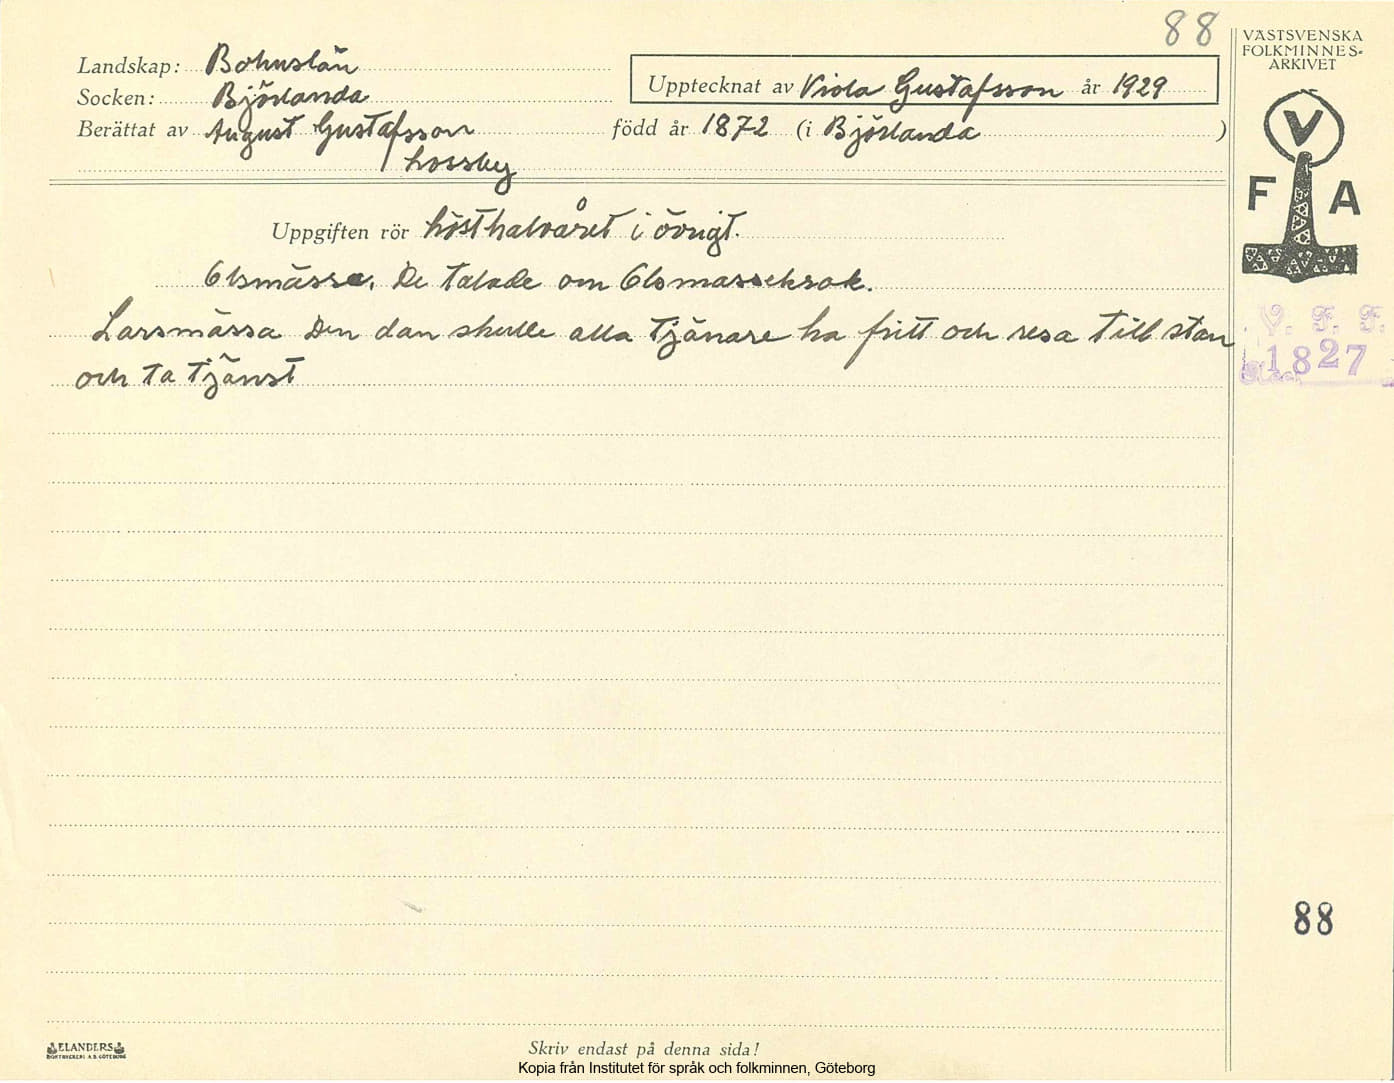 88
VÄSTSVENSKA
FOLKMINNES-
ARKIVET
Landskap: Bohuslän
Socken: Björlanda
Upptecknat av Viola Gustafsson år 1929
Berättat av August Gustafsson född år 1872 (i Björlanda )
Lossby
V
F A
Uppgiften rör hösthalvåret i övrigt.
Olsmässa. De talade om Olsmassekrok.
Larsmässa Den dan skulle alla tjänare ha fritt och resa till stan
och ta tjänst
V. F. F.
1827
88
ELANDERS
BOKTRYCKERI A.B. GÖTEBORG
Skriv endast på denna sida!
Kopia från Institutet för språk och folkminnen, Göteborg